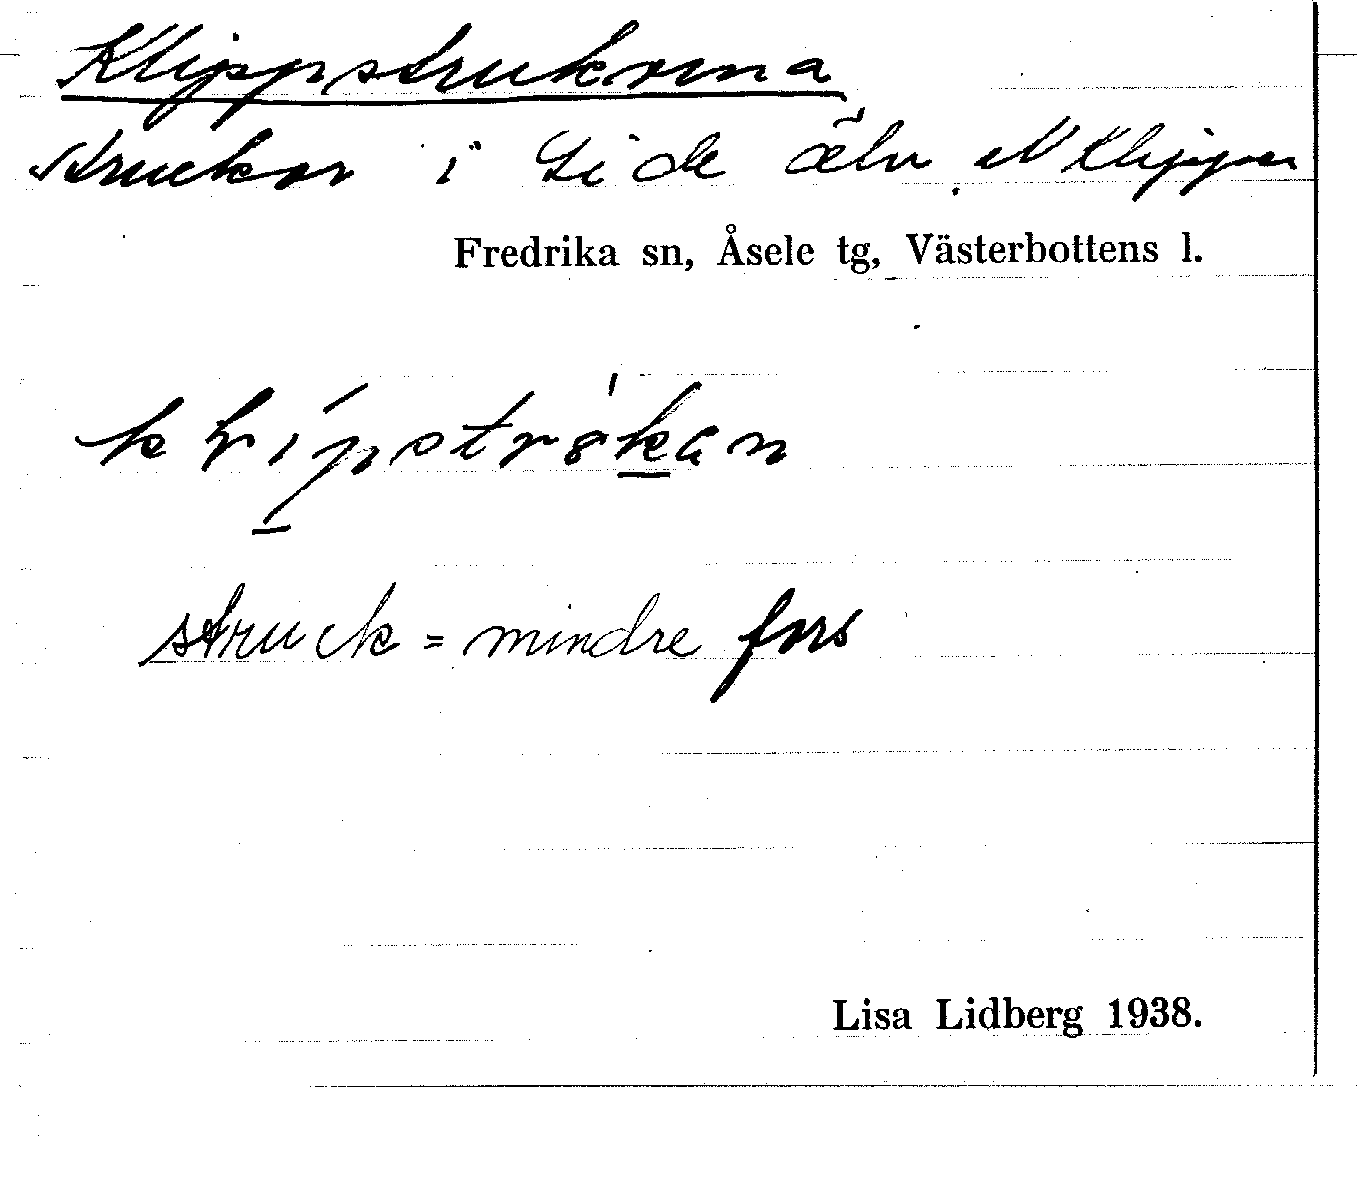 Klippstrukorna
struckor i Lide älv N Klippen
Fredrika sn, Åsele tg, Västerbottens l.
struck = mindre fors
Lisa Lidberg 1938.